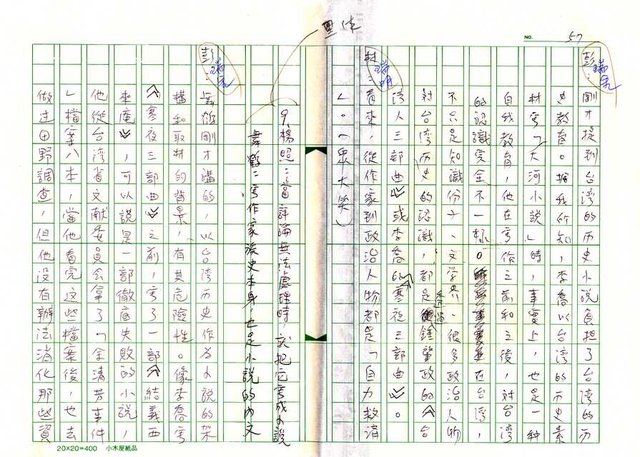 NO. 57
彭瑞金
剛才提到台灣的歷史小說負擔了台灣的歷
史教育。據我所知,李喬以台灣的歷史素
材寫「大河小說」時,事實上,也是一種
自我教育,他在寫作之前和之後,對台灣
的認識完全不一樣。在台灣,
不只是知識份子、文學界,很多政治人物
對台灣歷史的認識,都是從鍾肇政的《台
灣人三部曲》或李喬的《寒夜三部曲》。
林瑞明
看來,從作家到政治人物都是「自力救濟
」。(眾大笑)
黑体
9.楊照:當評論無法處理時,就把它寫成小說
舞鶴:寫作家淡史本身,也是小說的內文
彭瑞金
舞鶴剛才講的,以台灣歷史作為小說的架
構和取材的背景,有其危險性。像李喬寫
《寒夜三部曲》之前,寫了一部《結義西
來庵》,可以說是一部徹底失敗的小說。
他從台灣省文獻委員會拿了「余清芳事件
」檔案八本,當他看完這些檔案後,也去
做過田野調查,但他沒有辦法消化那些資
20X20=400 小木屋紙品